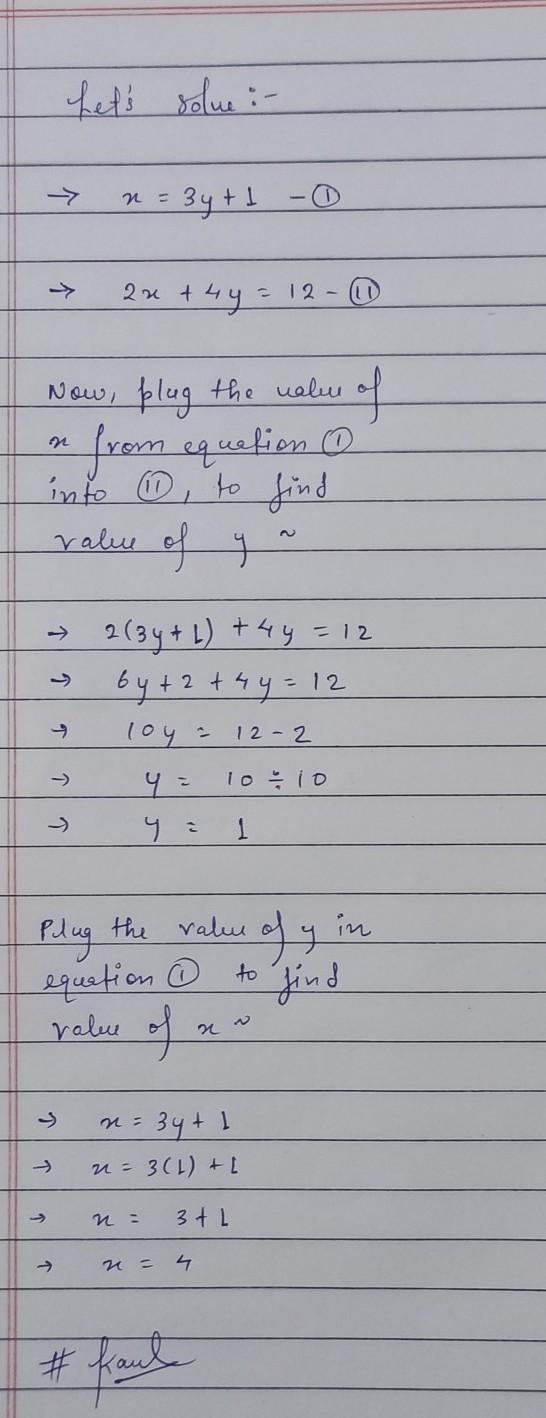 Let's solve :-
→ x = 3y + 1 - ①
→ 2x + 4y = 12 - ⑪
Now, plug the value of
x from equation ①
into ⑪, to find
value of y ~
→ 2(3y + 1) + 4y = 12
→ 6y + 2 + 4y = 12
→ 10y = 12 - 2
→ y = 10 ÷ 10
→ y = 1
Plug the value of y in
equation ① to find
value of x ~
→ x = 3y + 1
→ x = 3(1) + 1
→ x = 3 + 1
→ x = 4
#